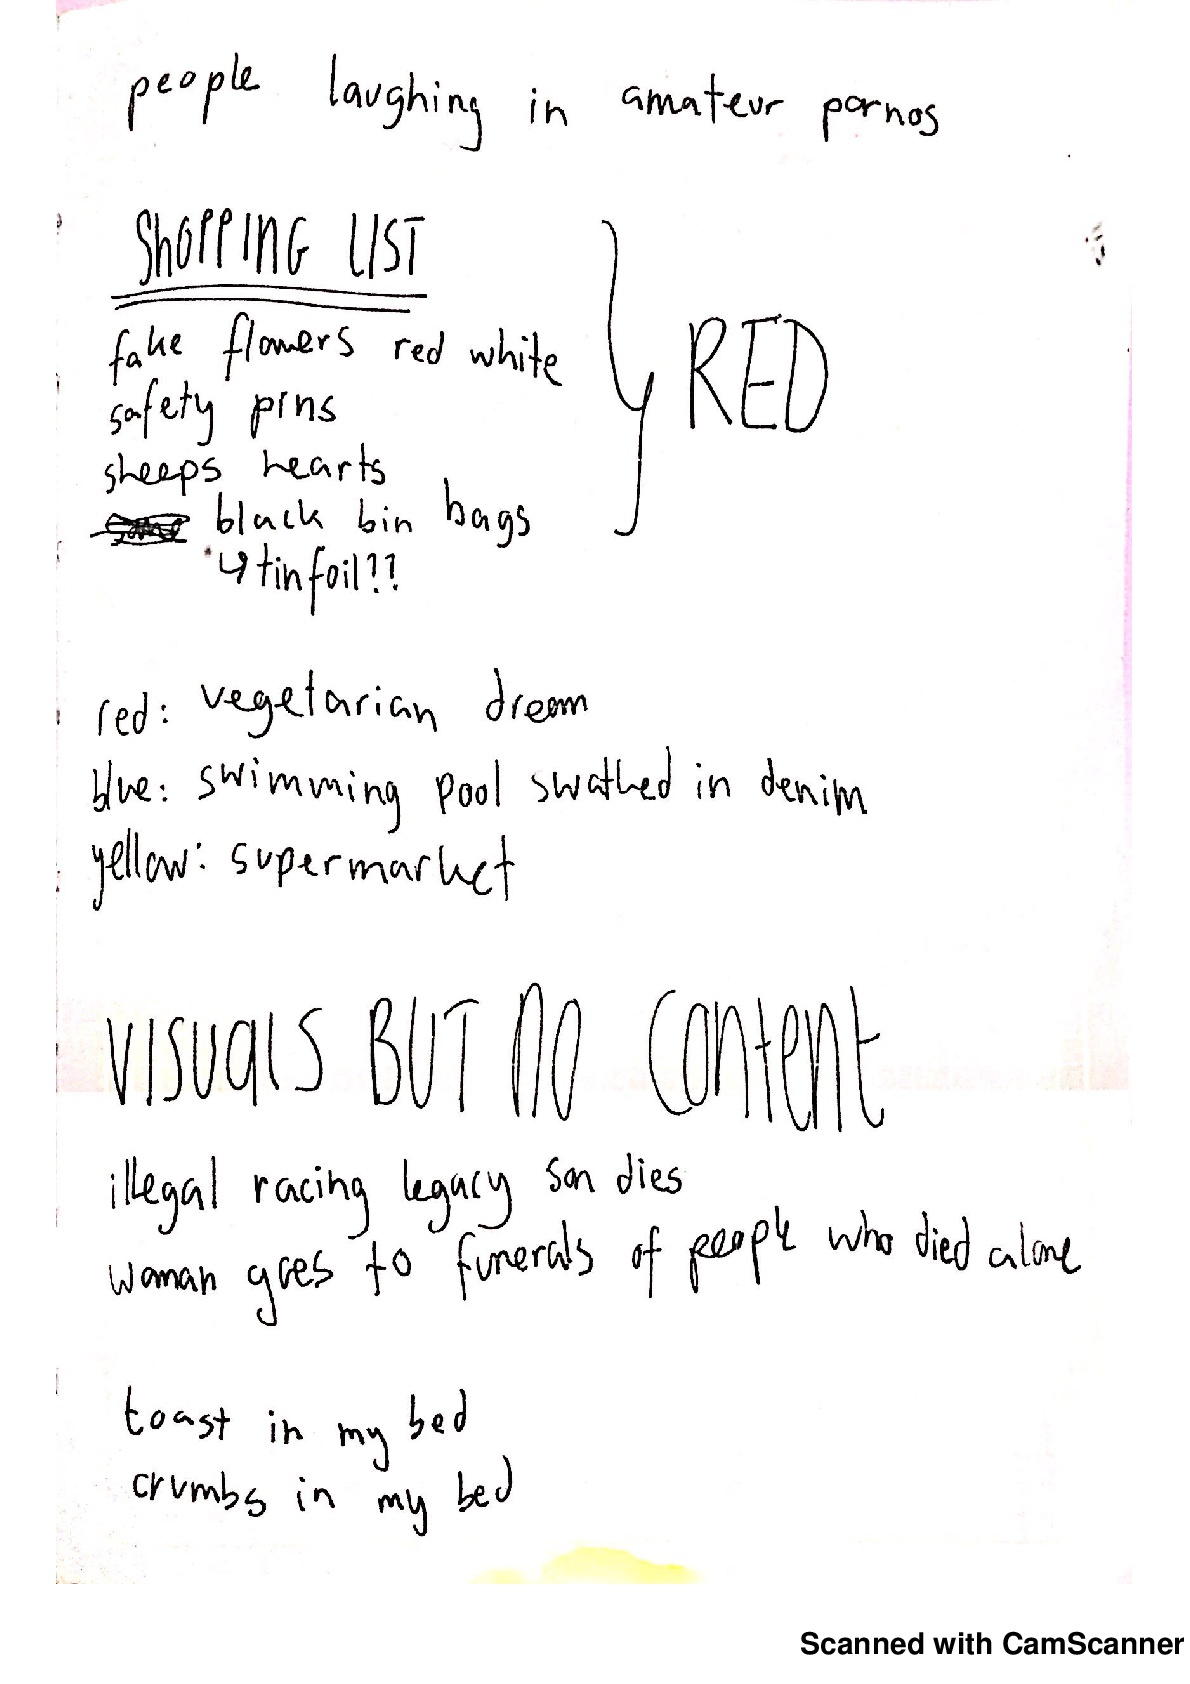 people laughing in amateur pornos
ShOPPING LIST
fake flowers red white
safety pins
sheeps hearts
black bin bags
↳ tinfoil??
RED
red: vegetarian dream
blue: swimming pool swathed in denim
yellow: supermarket
VISUALS BUT NO CONTENT
illegal racing legacy son dies
woman goes to funerals of people who died alone
toast in my bed
crumbs in my bed
Scanned with CamScanner